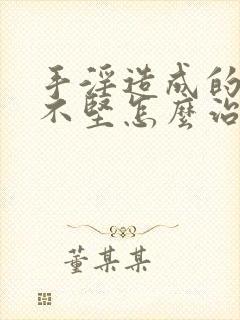 手淫造成的
不堅怎麼治
董某某